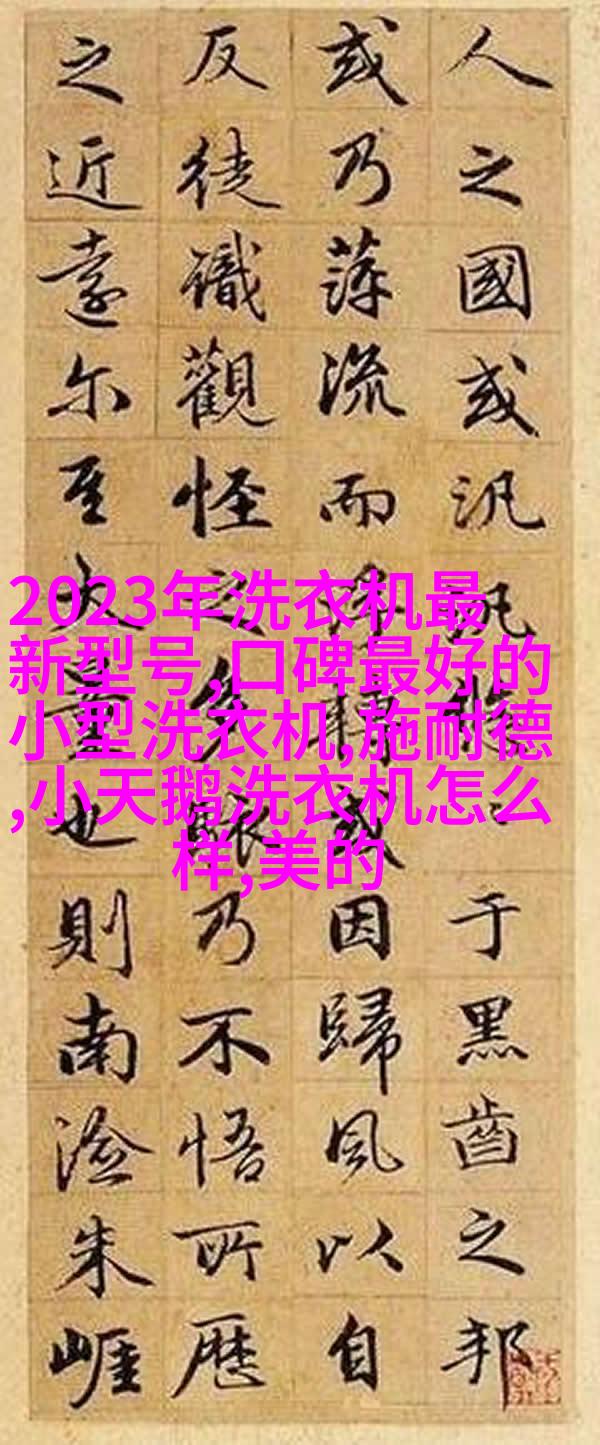 人之國或汎汎悠〻于黑齒之邦
或乃萍流而浮轉或因歸風以自
反徒識觀怪之多駭乃不悟所歷
之近遠尔至大量也則南澰朱崕
2023年洗衣机最
新型号,口碑最好的
小型洗衣机,施耐德
,小天鹅洗衣机怎么
样,美的